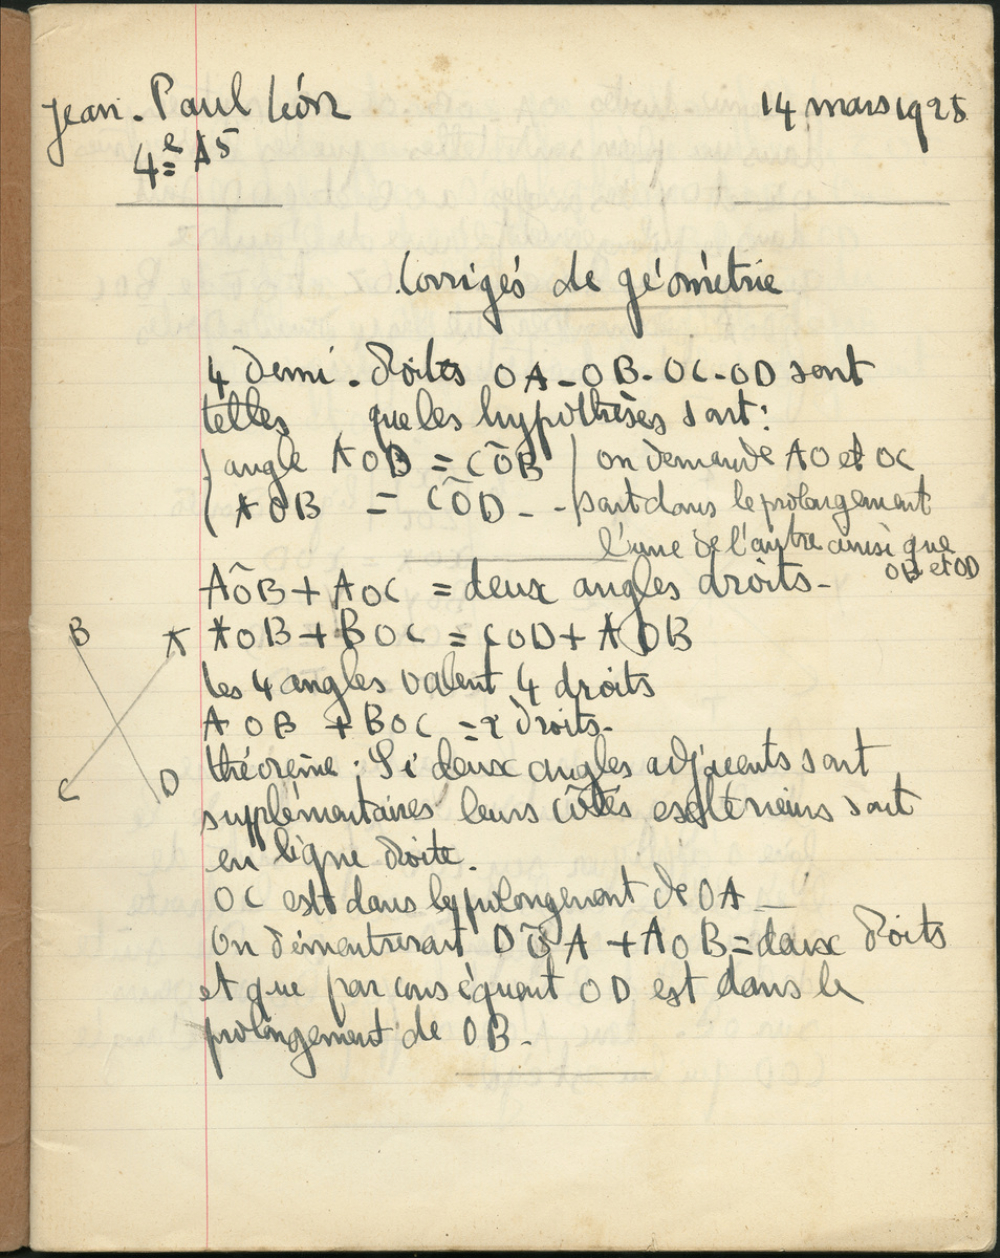 Jean-Paul Léon 14 mars 1925
4e A5
Corrigés de géométrie
4 demi-droites OA-OB-OC-OD sont
telles que les hypothèses sont:
angle AOB = COB on demande AO et OC
AOB = COD - - sont dans le prolongement
l'une de l'autre ainsi que
OB et OD
AOB + AOC = deux angles droits-
B A AOB + BOC = COD + AOB
les 4 angles valent 4 droits
AOB + BOC = 2 droits-
C D théorème: Si deux angles adjacents sont
supplémentaires leurs côtés extérieurs sont
en ligne droite.
OC est dans le prolongement de OA
On démontrerait DOA + AOB = deux droits
et que par conséquent OD est dans le
prolongement de OB-